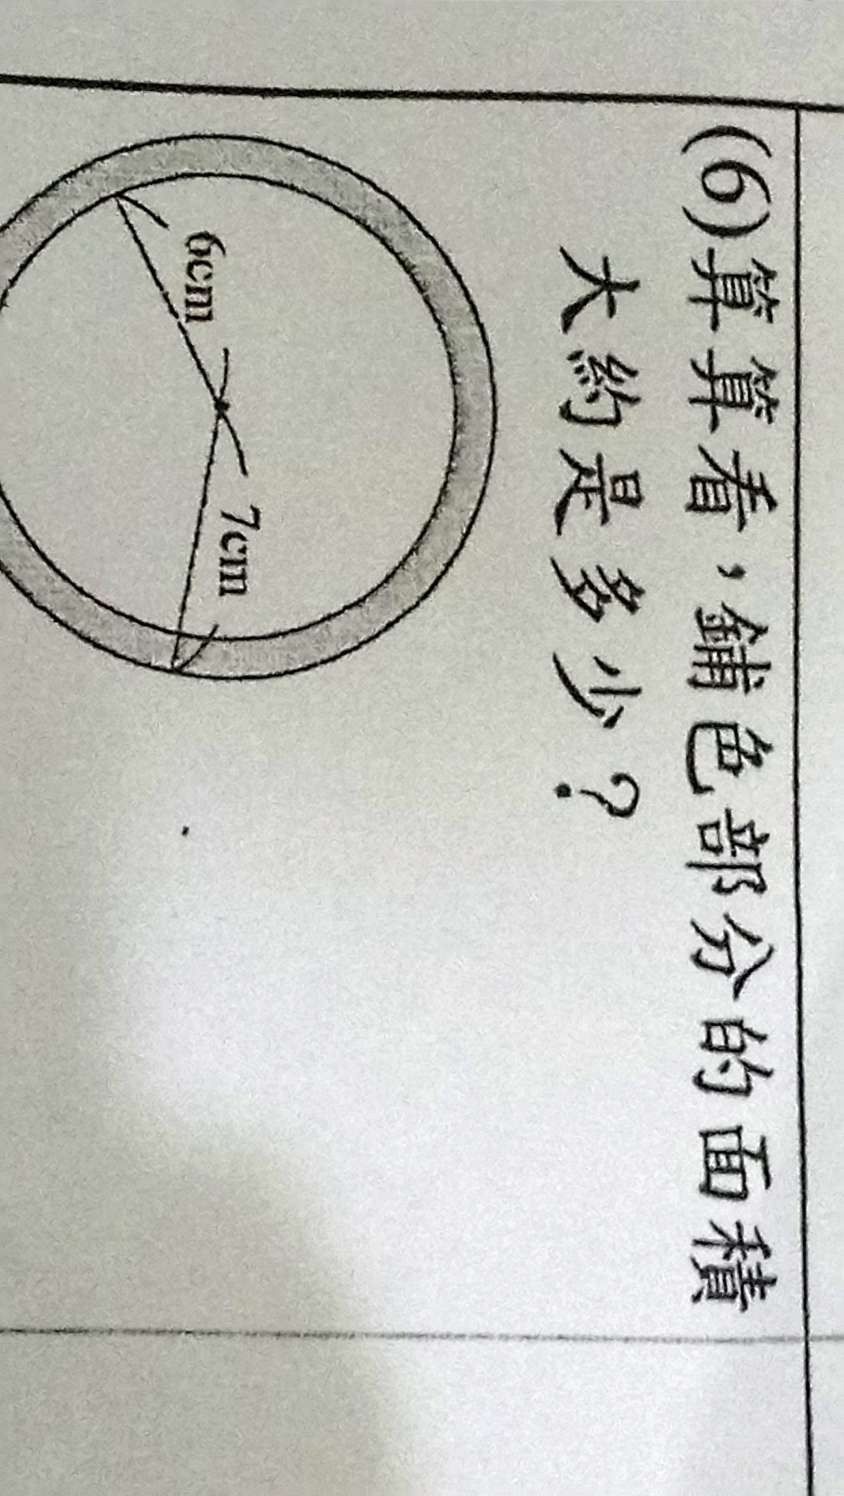 (6)算算看，鋪色部分的面積
大約是多少？
6cm
7cm